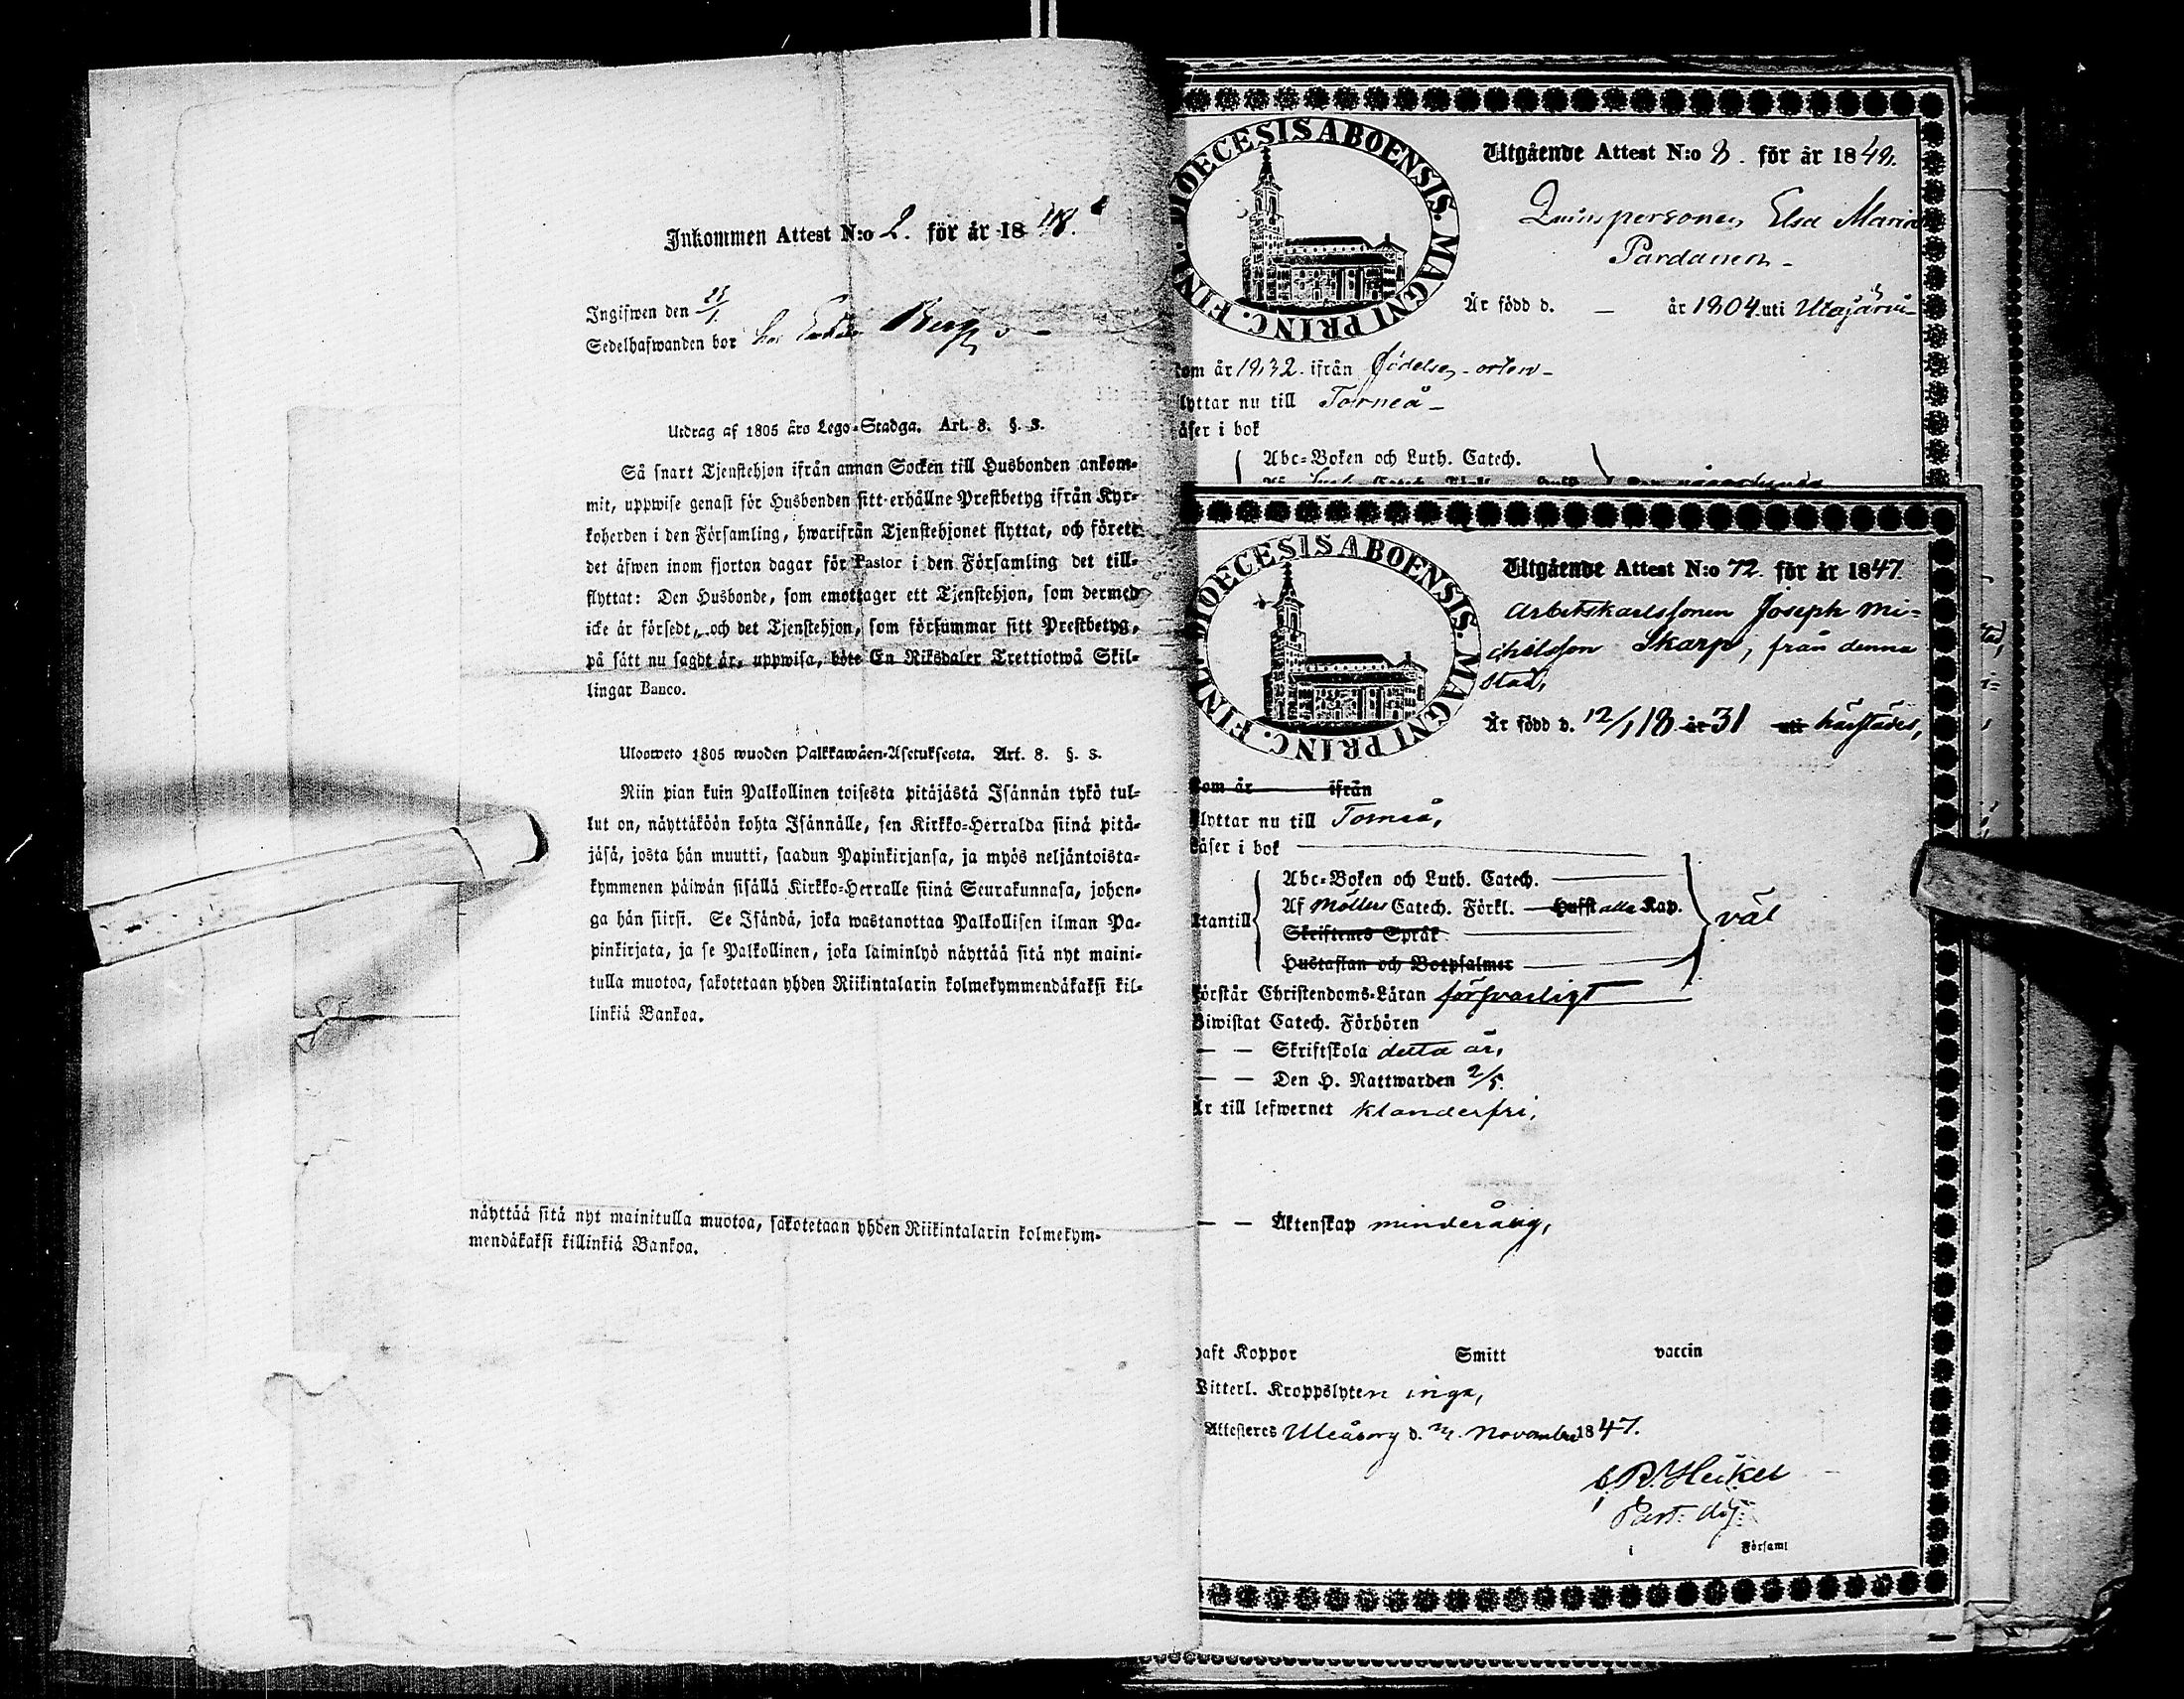 Inkommen Attest N:o 2. för år 1848.
Ingifwen den 23/1.
Sedelhafwanden bor hos Berg
Utdrag af 1805 års Lego-Stadga. Art. 8. §. 3.
Så snart Tjenstehjon ifrån annan Socken till Husbonden ankom-
mit, uppwise genast för Husbonden sitt erhållne Prestbetyg ifrån Kyr-
koherden i den Församling, hwarifrån Tjenstehjonet flyttat, och förete
det äfwen inom fjorton dagar för Pastor i den Församling det till-
flyttat: Den Husbonde, som emottager ett Tjenstehjon, som dermed
icke är försedt, och det Tjenstehjon, som försummar sitt Prestbetyg,
på sätt nu sagdt är, uppwisa, böte En Riksdaler Trettiotwå Skil-
lingar Banco.
Ulosweto 1805 wuoden Palkkawäen-Asetuksesta. Art. 8. §. 3.
Niin pian kuin Palkollinen toisesta pitäjästä Isännän tykö tul-
lut on, näyttäköön kohta Isännälle, sen Kirkko-Herralda siinä pitä-
jäsä, josta hän muutti, saadun Papinkirjansa, ja myös neljäntoista-
kymmenen päiwän sisällä Kirkko-Herralle siinä Seurakunnasa, johon-
ga hän siirsi. Se Isändä, joka wastanottaa Palkollisen ilman Pa-
pinkirjata, ja se Palkollinen, joka laiminlyö näyttää sitä nyt maini-
tulla muotoa, sakotetaan yhden Riikintalarin kolmekymmendäkaksi kil-
linkiä Bankoa.
näyttää sitä nyt mainitulla muotoa, sakotetaan yhden Riikintalarin kolmekym-
mendäkaksi killinkiä Bankoa.
DIOECESIS ABOENSIS. MAGNI PRINC. FINL.
Utgående Attest N:o 8. för år 1849.
Quinspersonen Elsa Maria
Pardanen
Är född d. — år 1804 uti Utajärvi
kom år 1832. ifrån födelse-orten
flyttar nu till Torneå
läser i bok
Abc-Boken och Luth. Catech.
DIOECESIS ABOENSIS. MAGNI PRINC. FINL.
Utgående Attest N:o 72. för år 1847.
Arbetskarlssonen Joseph Mi-
chelsson Skarp, från denna
stad,
Är född d. 12/1 18 år 31 uti härstädes,
kom år ifrån
flyttar nu till Torneå,
läser i bok
Abc-Boken och Luth. Catech.
utantill Af Möllers Catech. Förkl. Hufst alla Kap. väl
Skriftenes Språk
Hustaflan och Botpsalmer
förstår Christendoms-Läran försvarligt
Biwistat Catech. Förhören
— — Skriftskola detta år,
— — Den H. Nattwarden 2/5.
Är till lefwernet klanderfri,
— — Äktenskap minderårig,
haft Koppor Smitt vaccin
Witterl. Kroppslyten inga,
Attesteres Uleåborg d. November 1847.
Heikel
Past:
i Församl